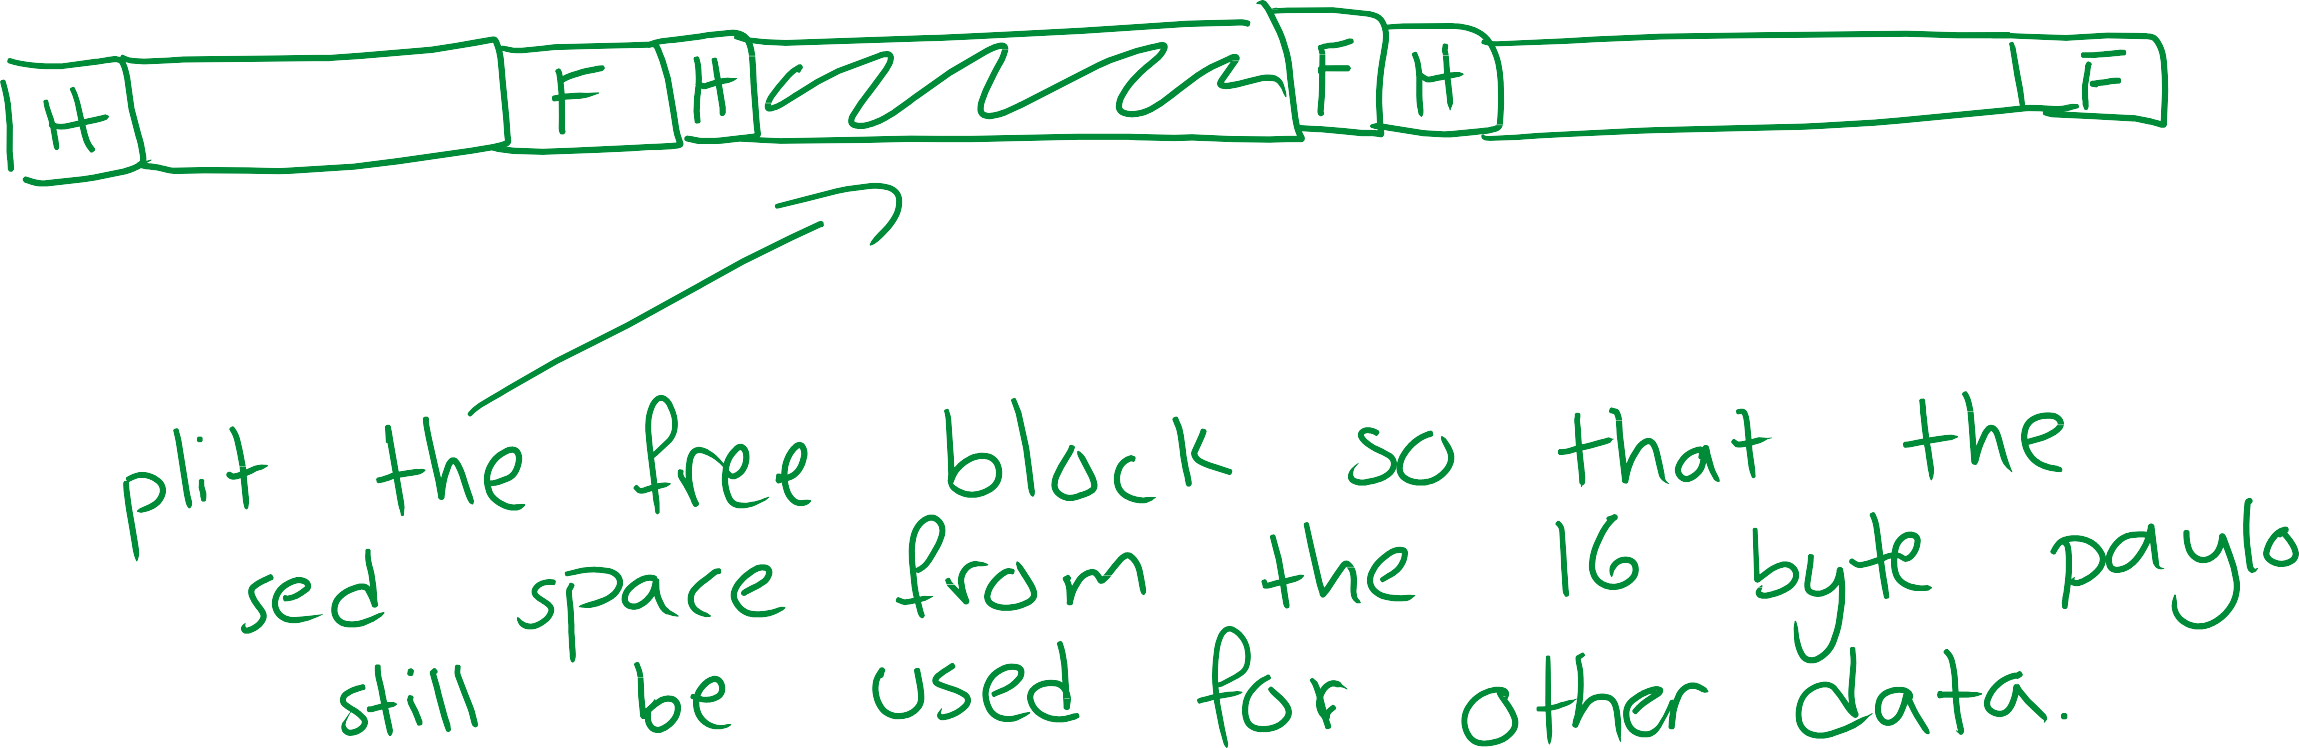 H F H F H E
plit the free block so that the
sed space from the 16 byte paylo
still be used for other data.